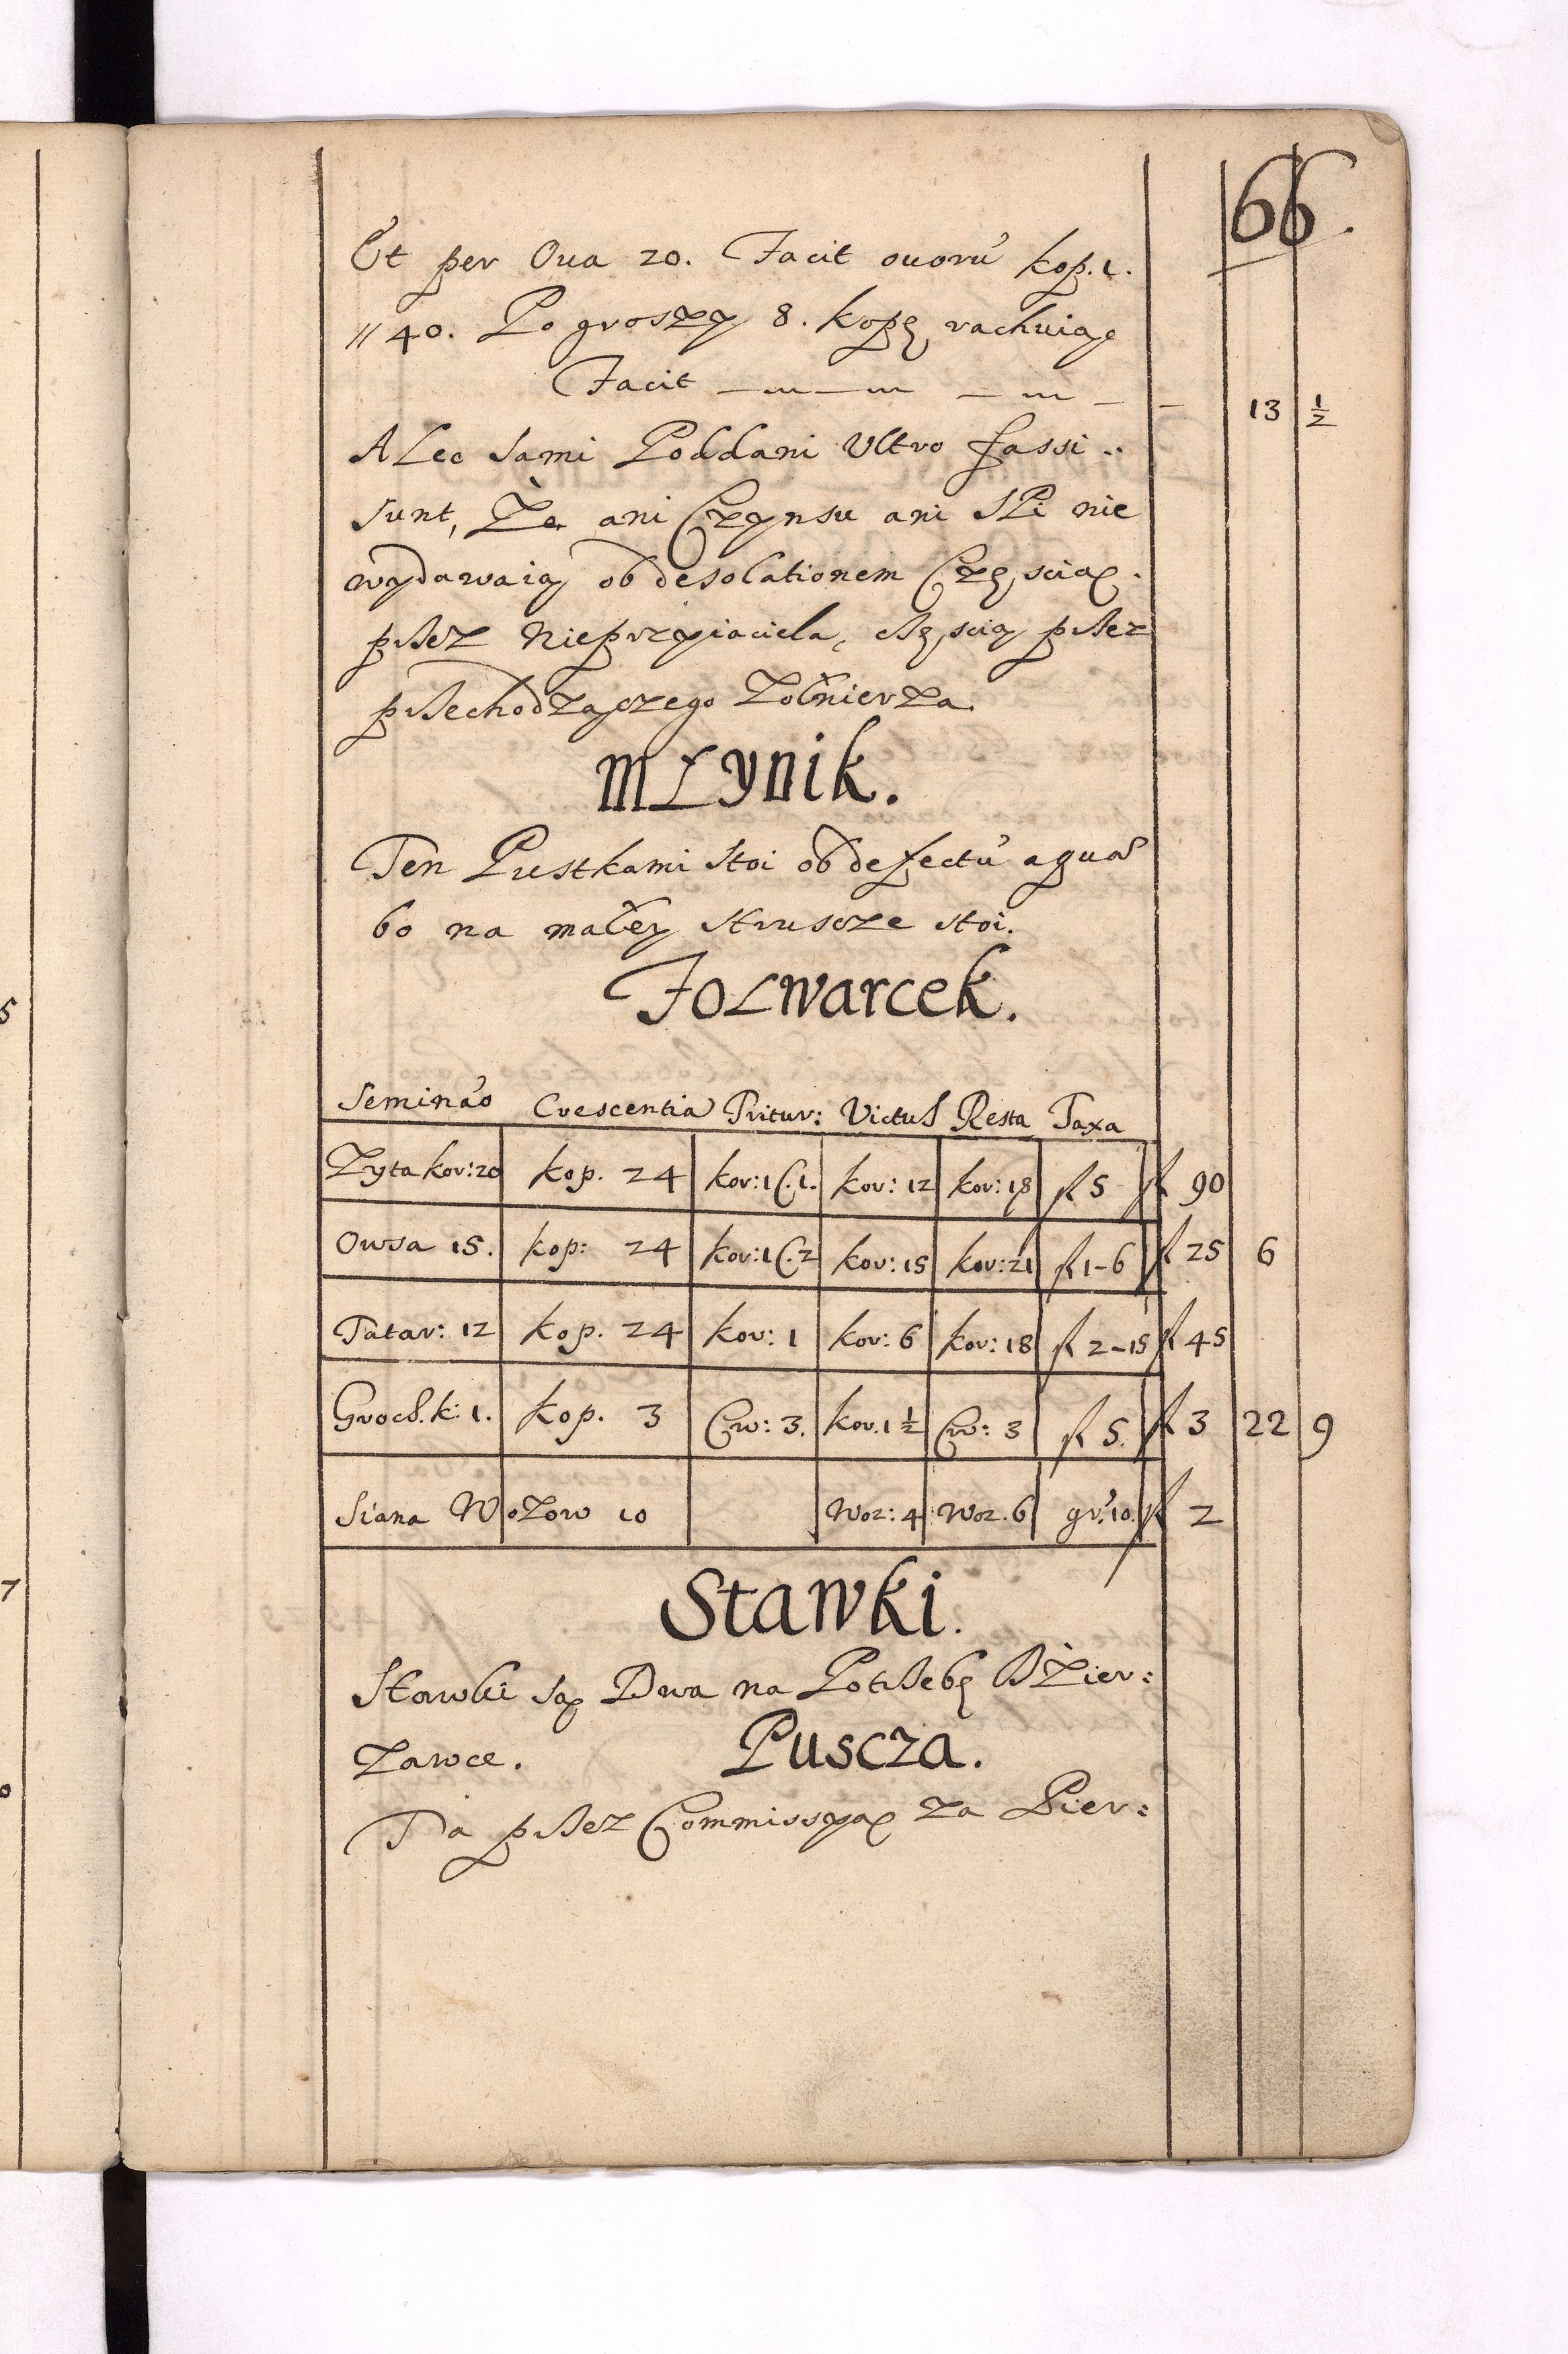 66.
Et per Oua 20. Facit ouorũ kop. 1.
// 40. Po groszy 8. kopę rachuiąc
Facit — — — — 13 ½
ALec sami Poddani Vltro fassi ..
sunt, Że ani Czynsu ani SPi nie
wydawaią ob desolationem Częscią
przez Nieprzyiaciela, częscią przez
przechodzączego Zołnierza.
MŁYnik.
Ten Pustkami stoi ob defectũ aquæ
bo na małey struscze stoi.
FOLwarcek.
Semina'o Crescentia Tritur: Victus Resta Taxa
Zyta kor: 20 kop. 24 kor: 1 C. 1. kor: 12 kor: 18 fl 5 fl 90
Owsa 15. kop: 24 kor: 1 C. 2 kor: 15 kor: 21 fl 1-6 fl 25 6
Tatar: 12 kop. 24 kor: 1 kor: 6 kor: 18 fl 2-15 fl 45
Groch. k: 1. kop. 3 Cw: 3. kor. 1 ½ Cw: 3 fl 5. fl 3 22 9
Siana Wozow 10 Woz: 4 Woz. 6 gr: 10. fl 2
Stawki.
Stawki są Dwa na Potrzebę Dzier:
zawce. Puscza.
Ta przez Commissyą za Pier:
5
7
0